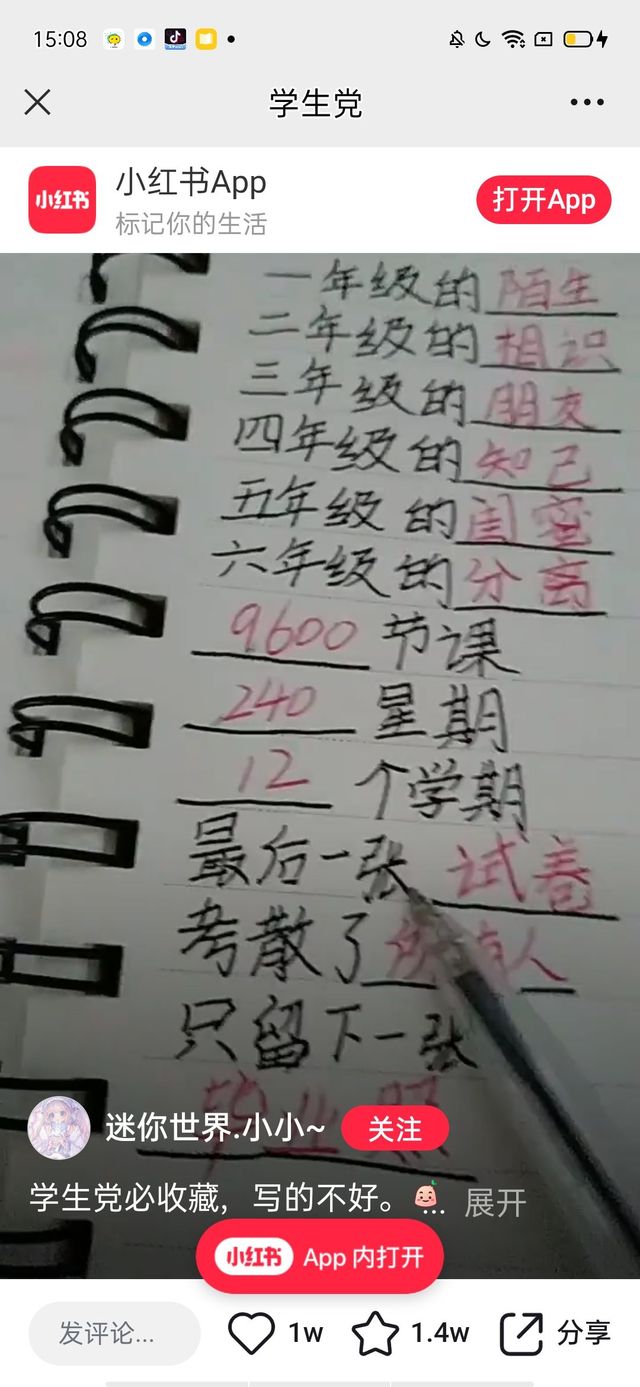 15:08
学生党
小红书
小红书App
标记你的生活
打开App
一年级的陌生
二年级的相识
三年级的朋友
四年级的知己
五年级的闺蜜
六年级的分离
9600节课
240星期
12个学期
最后一张试卷
考散了所有人
只留下一张
毕业照
迷你世界.小小~
关注
学生党必收藏，写的不好。... 展开
小红书 App 内打开
发评论... 1w 1.4w 分享